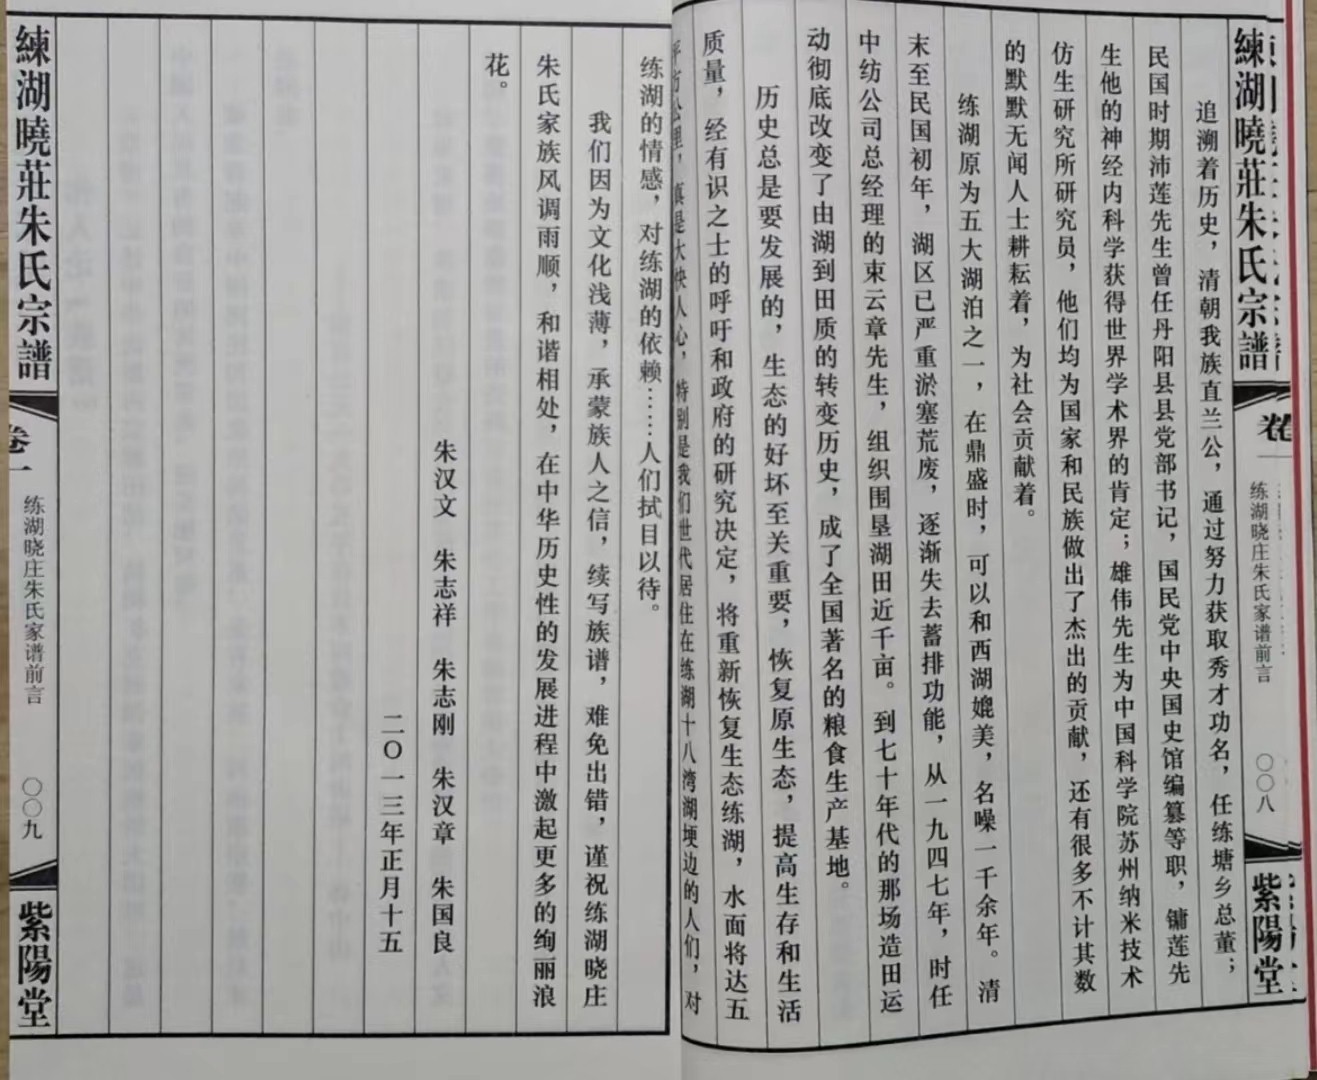 練湖曉莊朱氏宗譜
卷
练湖晓庄朱氏家谱前言
〇〇八
紫陽堂
追溯着历史，清朝我族直兰公，通过努力获取秀才功名，任练塘乡总董；
民国时期沛莲先生曾任丹阳县县党部书记，国民党中央国史馆编篡等职，镛莲先
生他的神经内科学获得世界学术界的肯定；雄伟先生为中国科学院苏州纳米技术
仿生研究所研究员，他们均为国家和民族做出了杰出的贡献，还有很多不计其数
的默默无闻人士耕耘着，为社会贡献着。
练湖原为五大湖泊之一，在鼎盛时，可以和西湖媲美，名噪一千余年。清
末至民国初年，湖区已严重淤塞荒废，逐渐失去蓄排功能，从一九四七年，时任
中纺公司总经理的束云章先生，组织围垦湖田近千亩。到七十年代的那场造田运
动彻底改变了由湖到田质的转变历史，成了全国著名的粮食生产基地。
历史总是要发展的，生态的好坏至关重要，恢复原生态，提高生存和生活
质量，经有识之士的呼吁和政府的研究决定，将重新恢复生态练湖，水面将达五
平方公里，真是大快人心，特别是我们世代居住在练湖十八湾湖埂边的人们，对
练湖的情感，对练湖的依赖……人们拭目以待。
我们因为文化浅薄，承蒙族人之信，续写族谱，难免出错，谨祝练湖晓庄
朱氏家族风调雨顺，和谐相处，在中华历史性的发展进程中激起更多的绚丽浪
花。
朱汉文 朱志祥 朱志刚 朱汉章 朱国良
二〇一三年正月十五
練湖曉莊朱氏宗譜
卷一
练湖晓庄朱氏家谱前言
〇〇九
紫陽堂